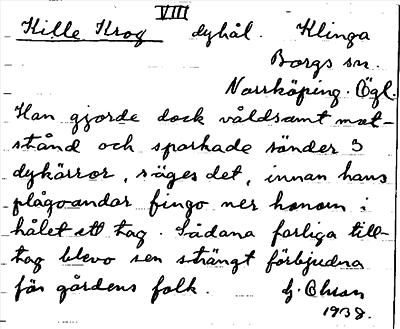 VIII
Kille Krog dyhål. Klinga
Borgs sn.
Norrköping. Ögl.
Han gjorde dock våldsamt mot-
stånd och sparkade sönder 3
dykärror, säges det, innan hans
plågoandar fingo ner honom i
hålet ett tag. Sådana farliga till-
tag blevo sen strängt förbjudna
för gårdens folk.
1938.